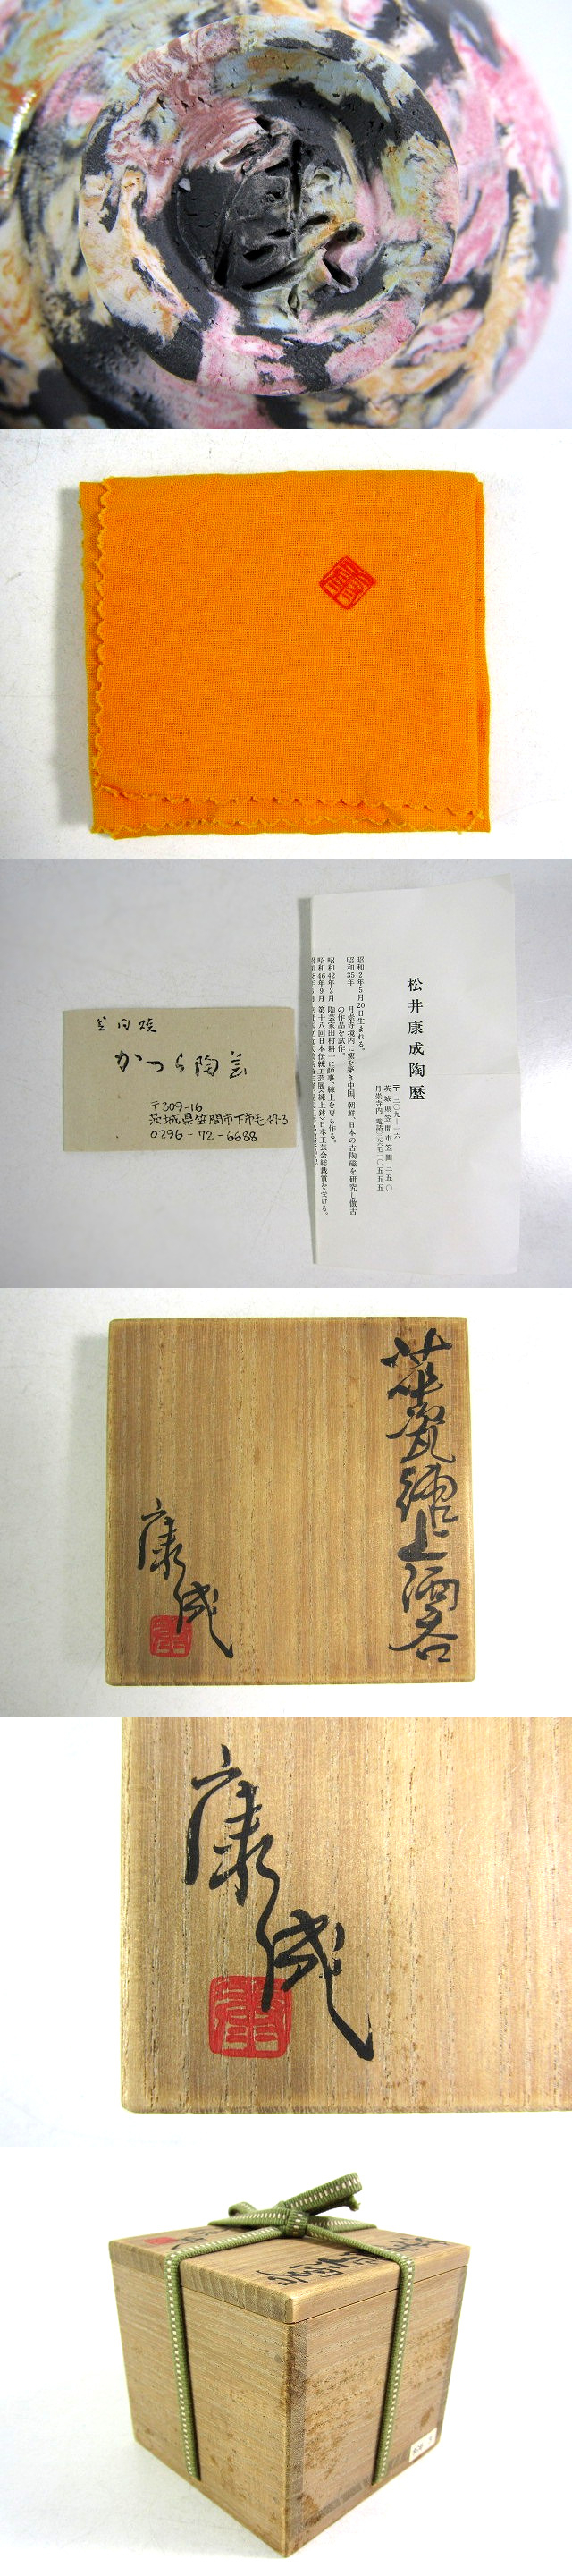 笠間焼
かつら陶芸
〒309-16
茨城県笠間市下市毛
0296-72-6688
松井康成陶歴
〒三〇九―一六
茨城県笠間市笠間三五〇
月崇寺内
昭和2年5月20日生まれる。
昭和35年　月崇寺境内に窯を築き中国、朝鮮、日本の古陶磁を研究し倣古
の作品を試作。
昭和42年2月　陶芸家田村耕一に師事、練上を専ら作る。
昭和46年9月　第十八回日本伝統工芸展〈練上鉢〉日本工芸会総裁賞を受ける。
練上酒呑
康成
康成